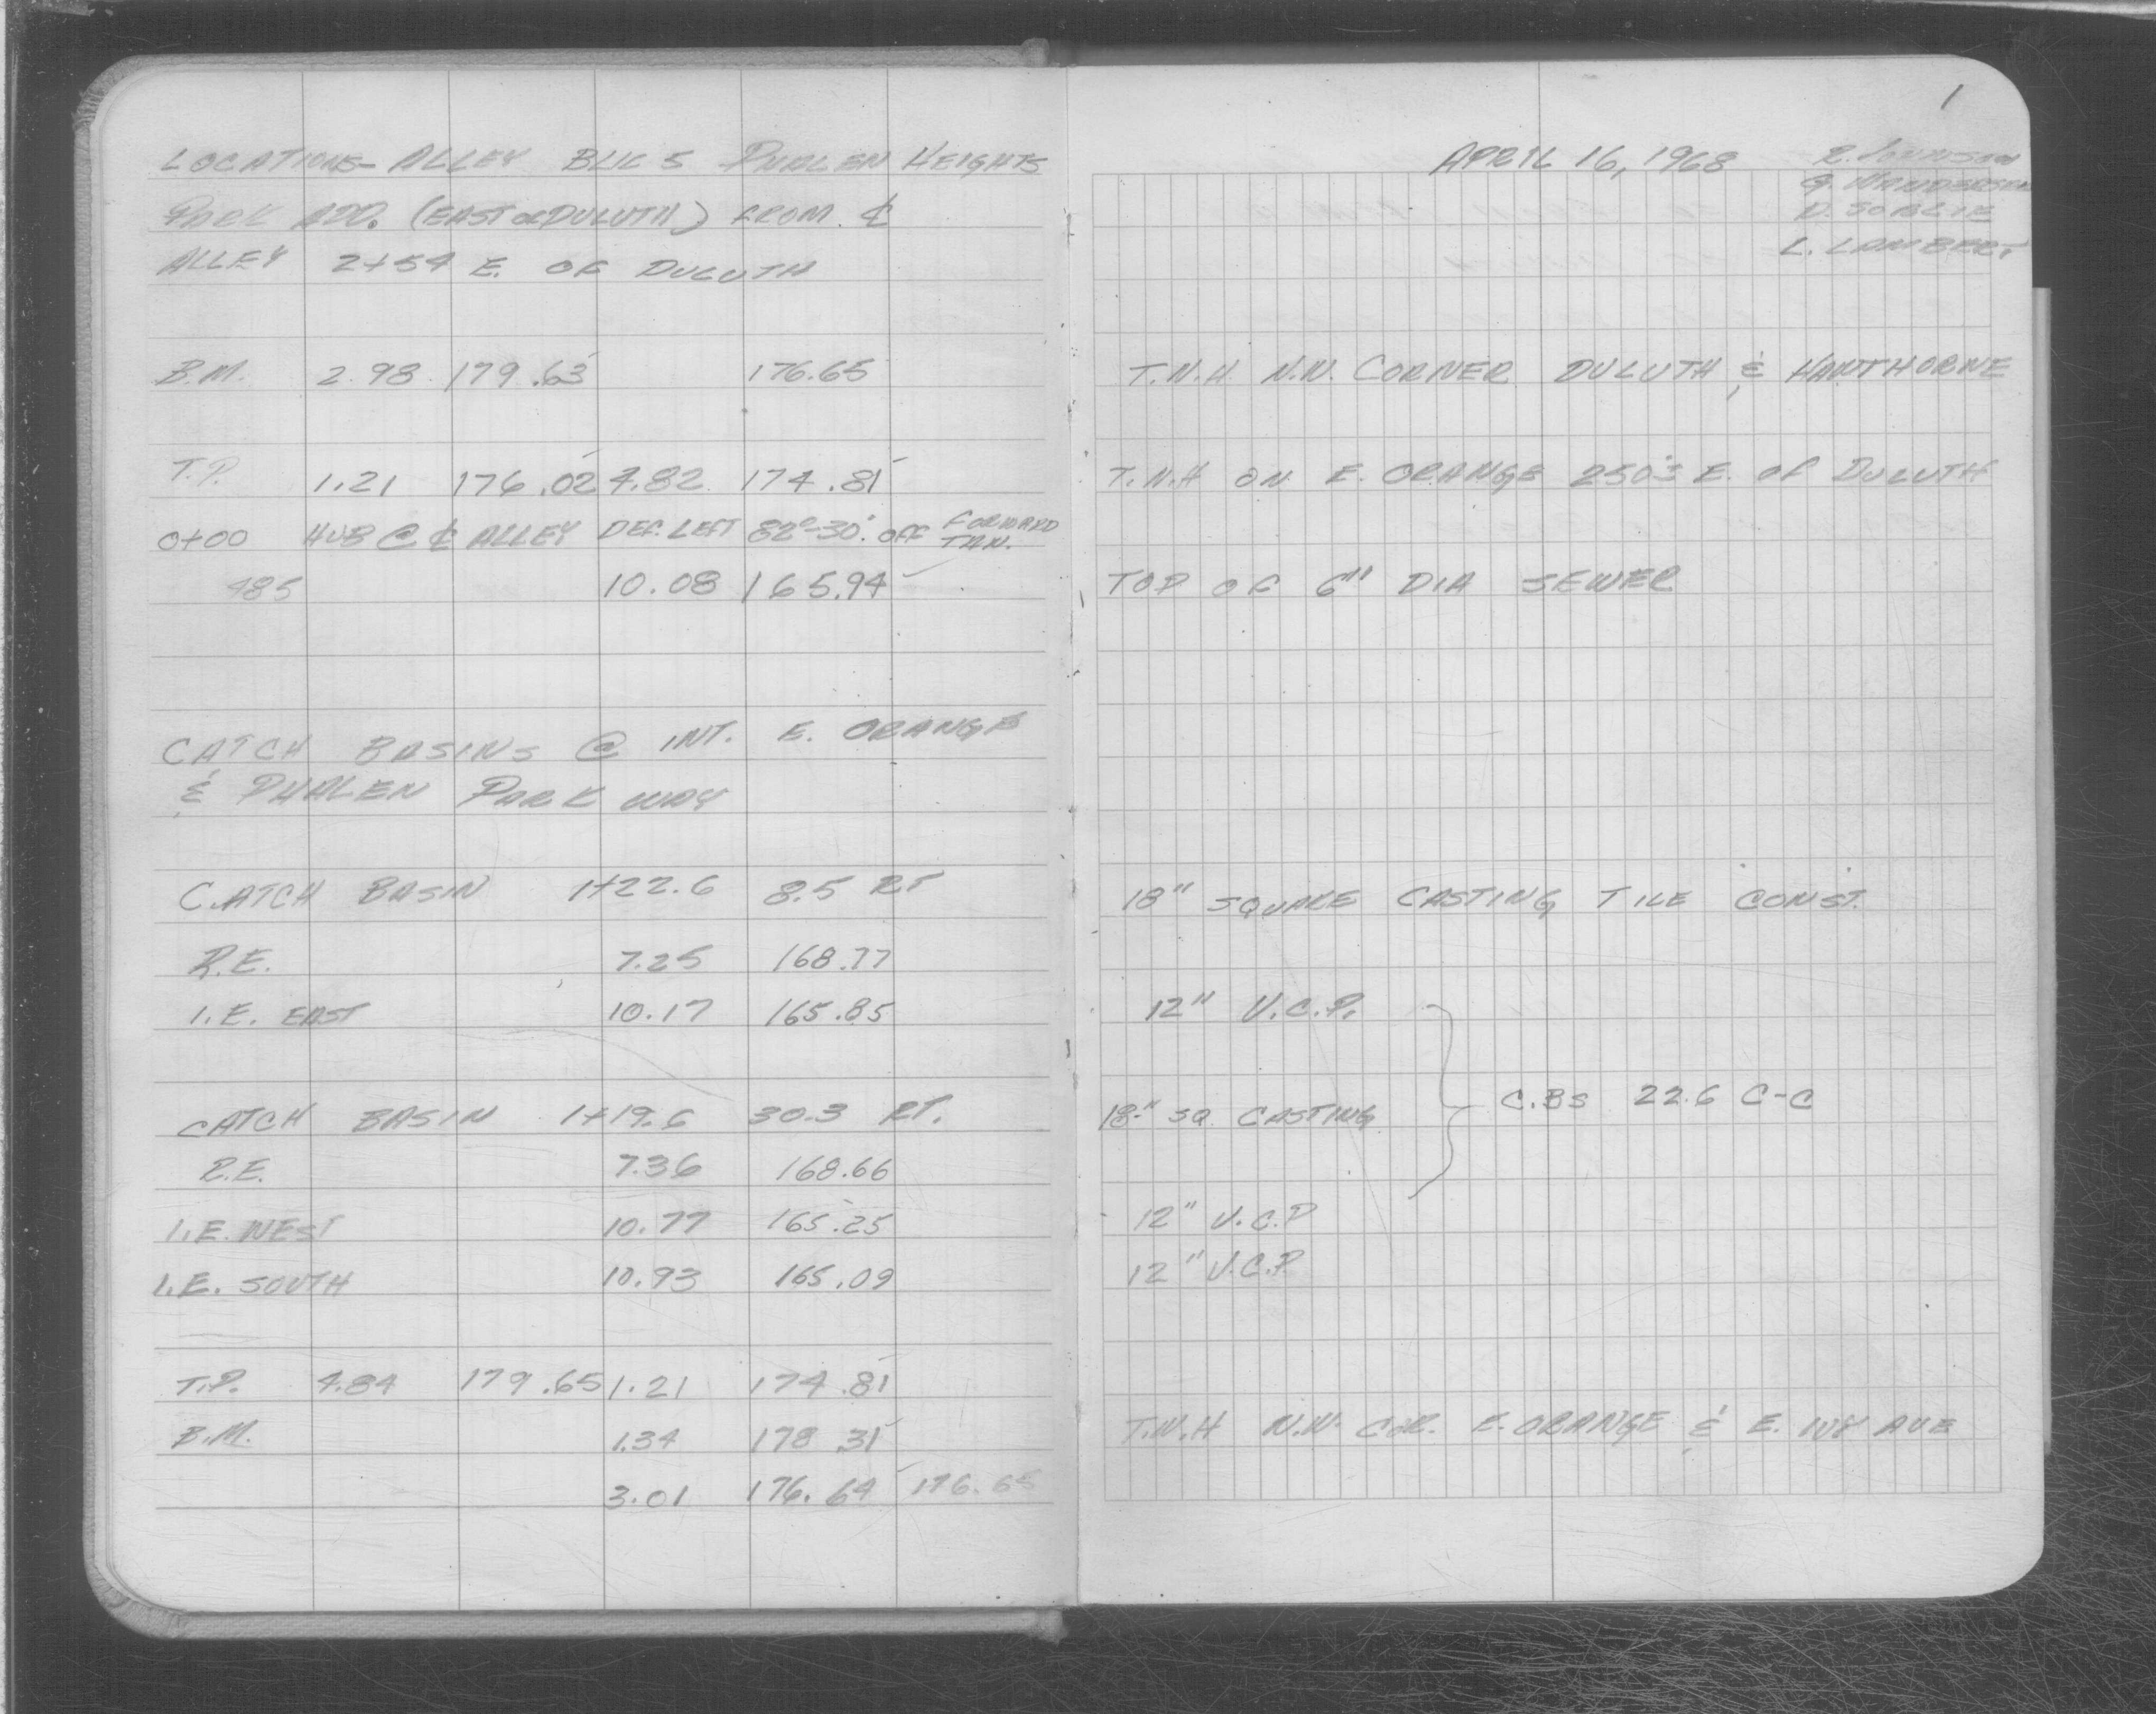 LOCATIONS - ALLEY BLK 5 PHALEN HEIGHTS
PARK ADD. (EAST OF DULUTH) FROM ℄
ALLEY 2+54 E. OF DULUTH
B.M. 2.98 179.63 176.65
T.P. 1.21 176.02 4.82 174.81
0+00 HUB @ ℄ ALLEY DEF. LEFT 82°-30' OFF FORWARD TAN.
485 10.08 165.94
CATCH BASINS @ INT. E. ORANGE
& PHALEN PARK WAY
CATCH BASIN 1+22.6 8.5 RT
R.E. 7.25 168.77
I.E. EAST 10.17 165.85
CATCH BASIN 1+19.6 30.3 RT.
R.E. 7.36 168.66
I.E. WEST 10.77 165.25
I.E. SOUTH 10.93 165.09
T.P. 4.84 179.65 1.21 174.81
B.M. 1.34 178.31
3.01 176.64 176.65
1
APRIL 16, 1968
R. JOHNSON
G. WANDERSEN
D. SORLIE
L. LAMBERT
T.N.H N.W. CORNER DULUTH & HAWTHORNE
T.N.H ON E. ORANGE 250'± E. OF DULUTH
TOP OF 6" DIA SEWER
18" SQUARE CASTING TILE CONST.
12" V.C.P.
18" SQ. CASTING
C.BS 22.6 C-C
12" V.C.P
12" V.C.P
T.N.H N.W. COR. E. ORANGE & E. IVY AVE